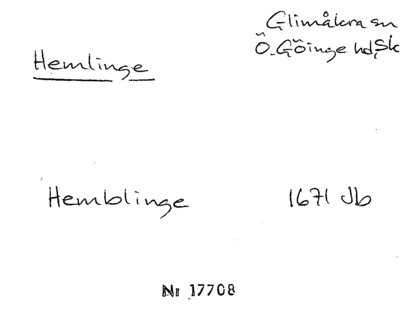 Glimåkra sn
Ö. Göinge hd, Sk
Hemlinge
Hemblinge 1671 Jb
Nr 17708